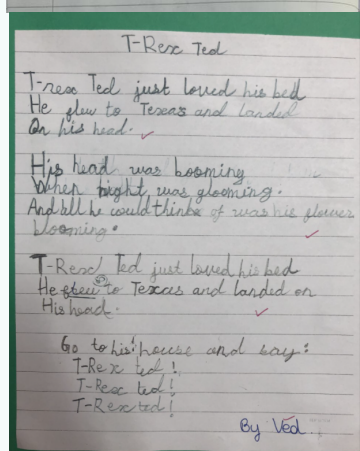 T-Rex Ted
T-rex Ted just loved his bed
He flew to Texas and landed
On his head.
His head was booming
When night was glooming.
And all he could thinke of was his flower
blooming.
T-Rex Ted just loved his bed
He flew to Texas and landed on
His head.
Go to his house and say:
T-Rex ted!
T-Rex ted!
T-Rex ted!
By Ved.